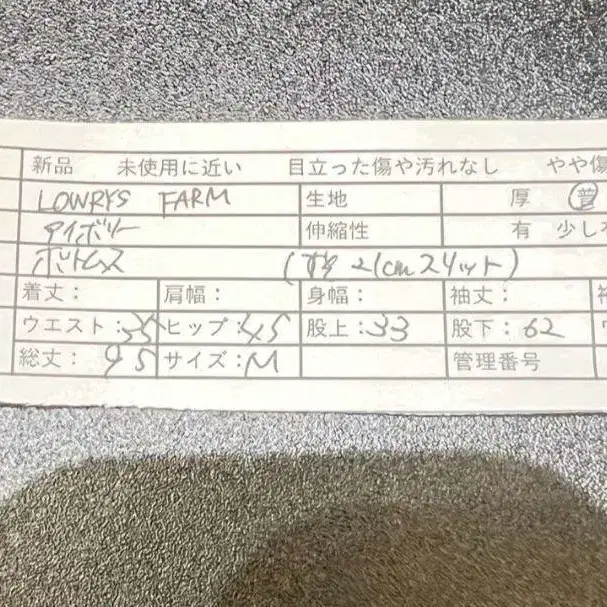 新品 未使用に近い 目立った傷や汚れなし やや傷
LOWRYS FARM 生地 厚 普
アイボリー 伸縮性 有 少し
ボトムス (すそ 21cmスリット)
着丈: 肩幅: 身幅: 袖丈:
ウエスト:35 ヒップ:45 股上:33 股下:62
総丈:95 サイズ:M 管理番号